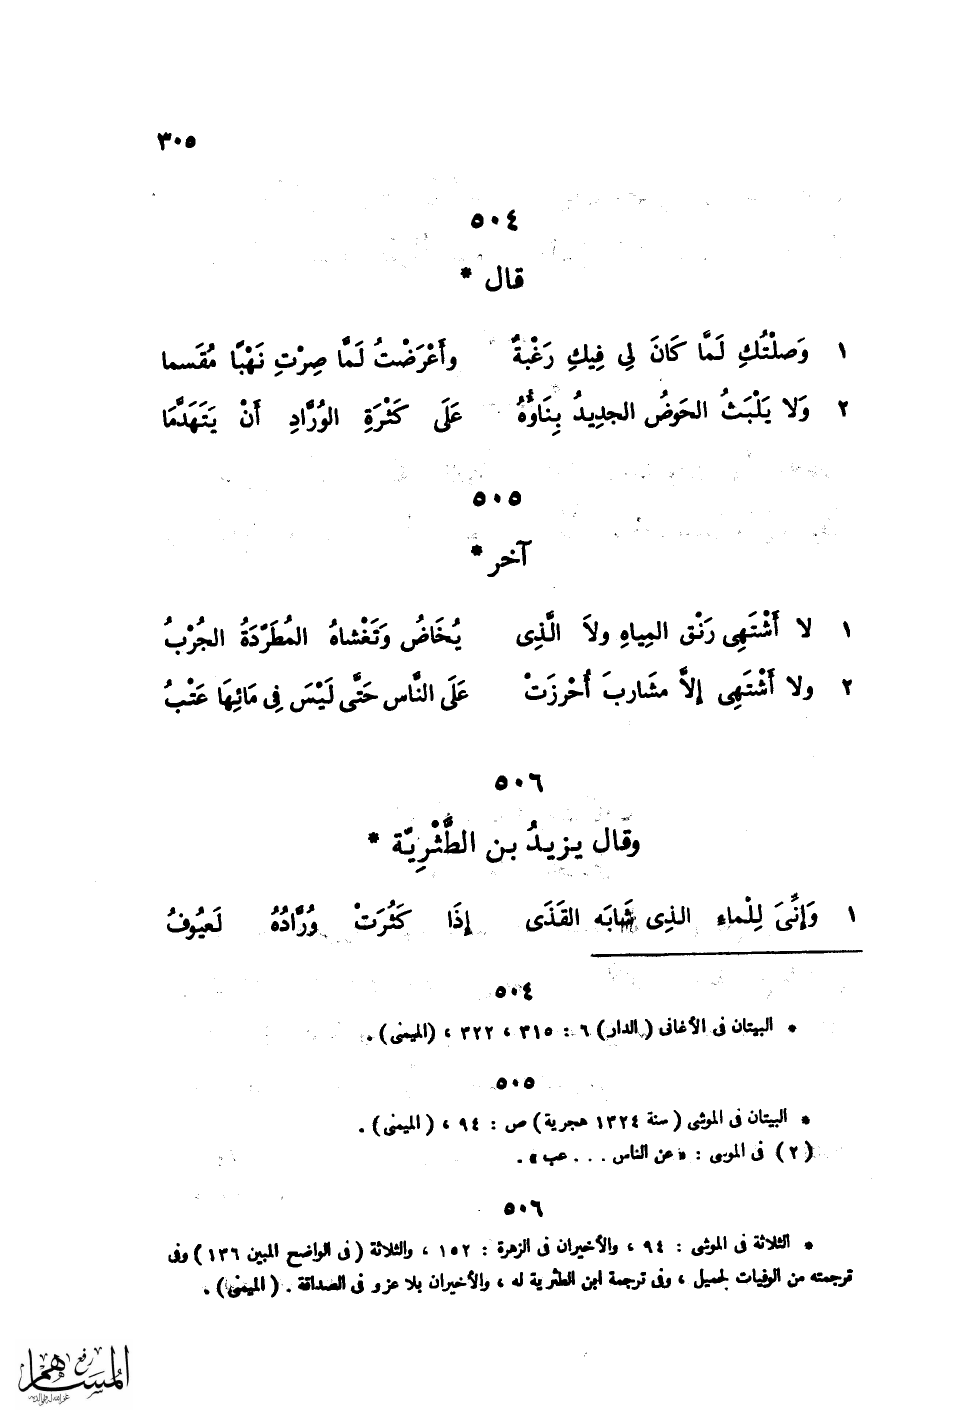 ٣٠٥
٥٠٤
قال *
١ وَصلْتُكِ لَمَّا كَانَ لِى فِيكِ رَغْبةٌ وأَعْرَضْتُ لَمَّا صِرْتِ نَهْبًا مُقَسما
٢ وَلا يَلْبَثُ الحَوضُ الجديدُ بِنَاؤُهُ عَلَى كَثْرَةِ الوُرَّادِ أَنْ يَتَهَدَّمَا
٥٠٥
آخر *
١ لا أَشْتَهِى رَنْق المِياهِ ولاَ الَّذِى يُخَاضُ وَتَغْشاهُ المُطَرَّدَةُ الجُرْبُ
٢ ولا أَشْتَهِى إلاَّ مشَاربَ أُحْرزَتْ عَلَى النَّاس حَتَّى لَيْسَ فِى مَائِهَا عَتْبُ
٥٠٦
وقال يزيدُ بن الطَّثْرِيّة *
١ وَإنِّىَ لِلْماءِ الذِى شَابَه القَذَى إذَا كَثُرَتْ وُرَّادُهُ لَعيُوفُ
٥٠٤
* البيتان فى الأغانى ( الدار ) ٦ : ٣١٥ ، ٣٢٢ ، (الميمنى) .
٥٠٥
* البيتان فى الموشى ( سنة ١٣٢٤ هجرية ) ص : ٩٤ ، ( الميمنى ) .
( ٢ ) فى الموسى : « عن الناس . . . عب » .
٥٠٦
* الثلاثة فى الموشى : ٩٤ ، والأخيران فى الزهرة : ١٥٢ ، والثلاثة ( فى الواضح المبين ١٣٦ ) وفى
ترجمته من الوفيات لجميل ، وفى ترجمة ابن الطثرية له ، والأخيران بلا عزو فى الصداقة . ( الميمنى ) .
رفع
المساهم